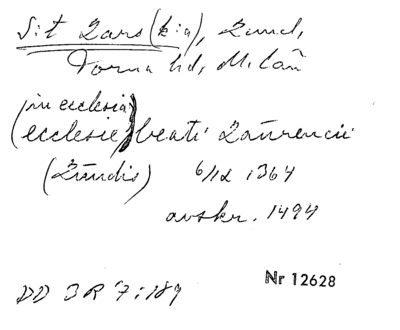 S:t Lars (k:a), Lund,
Torna hd, M-län
in ecclesia
(ecclesie) beati Laurencii
(Lundis) 6/12 1364
avskr. 1494
DD 3 R 7:189
Nr 12628